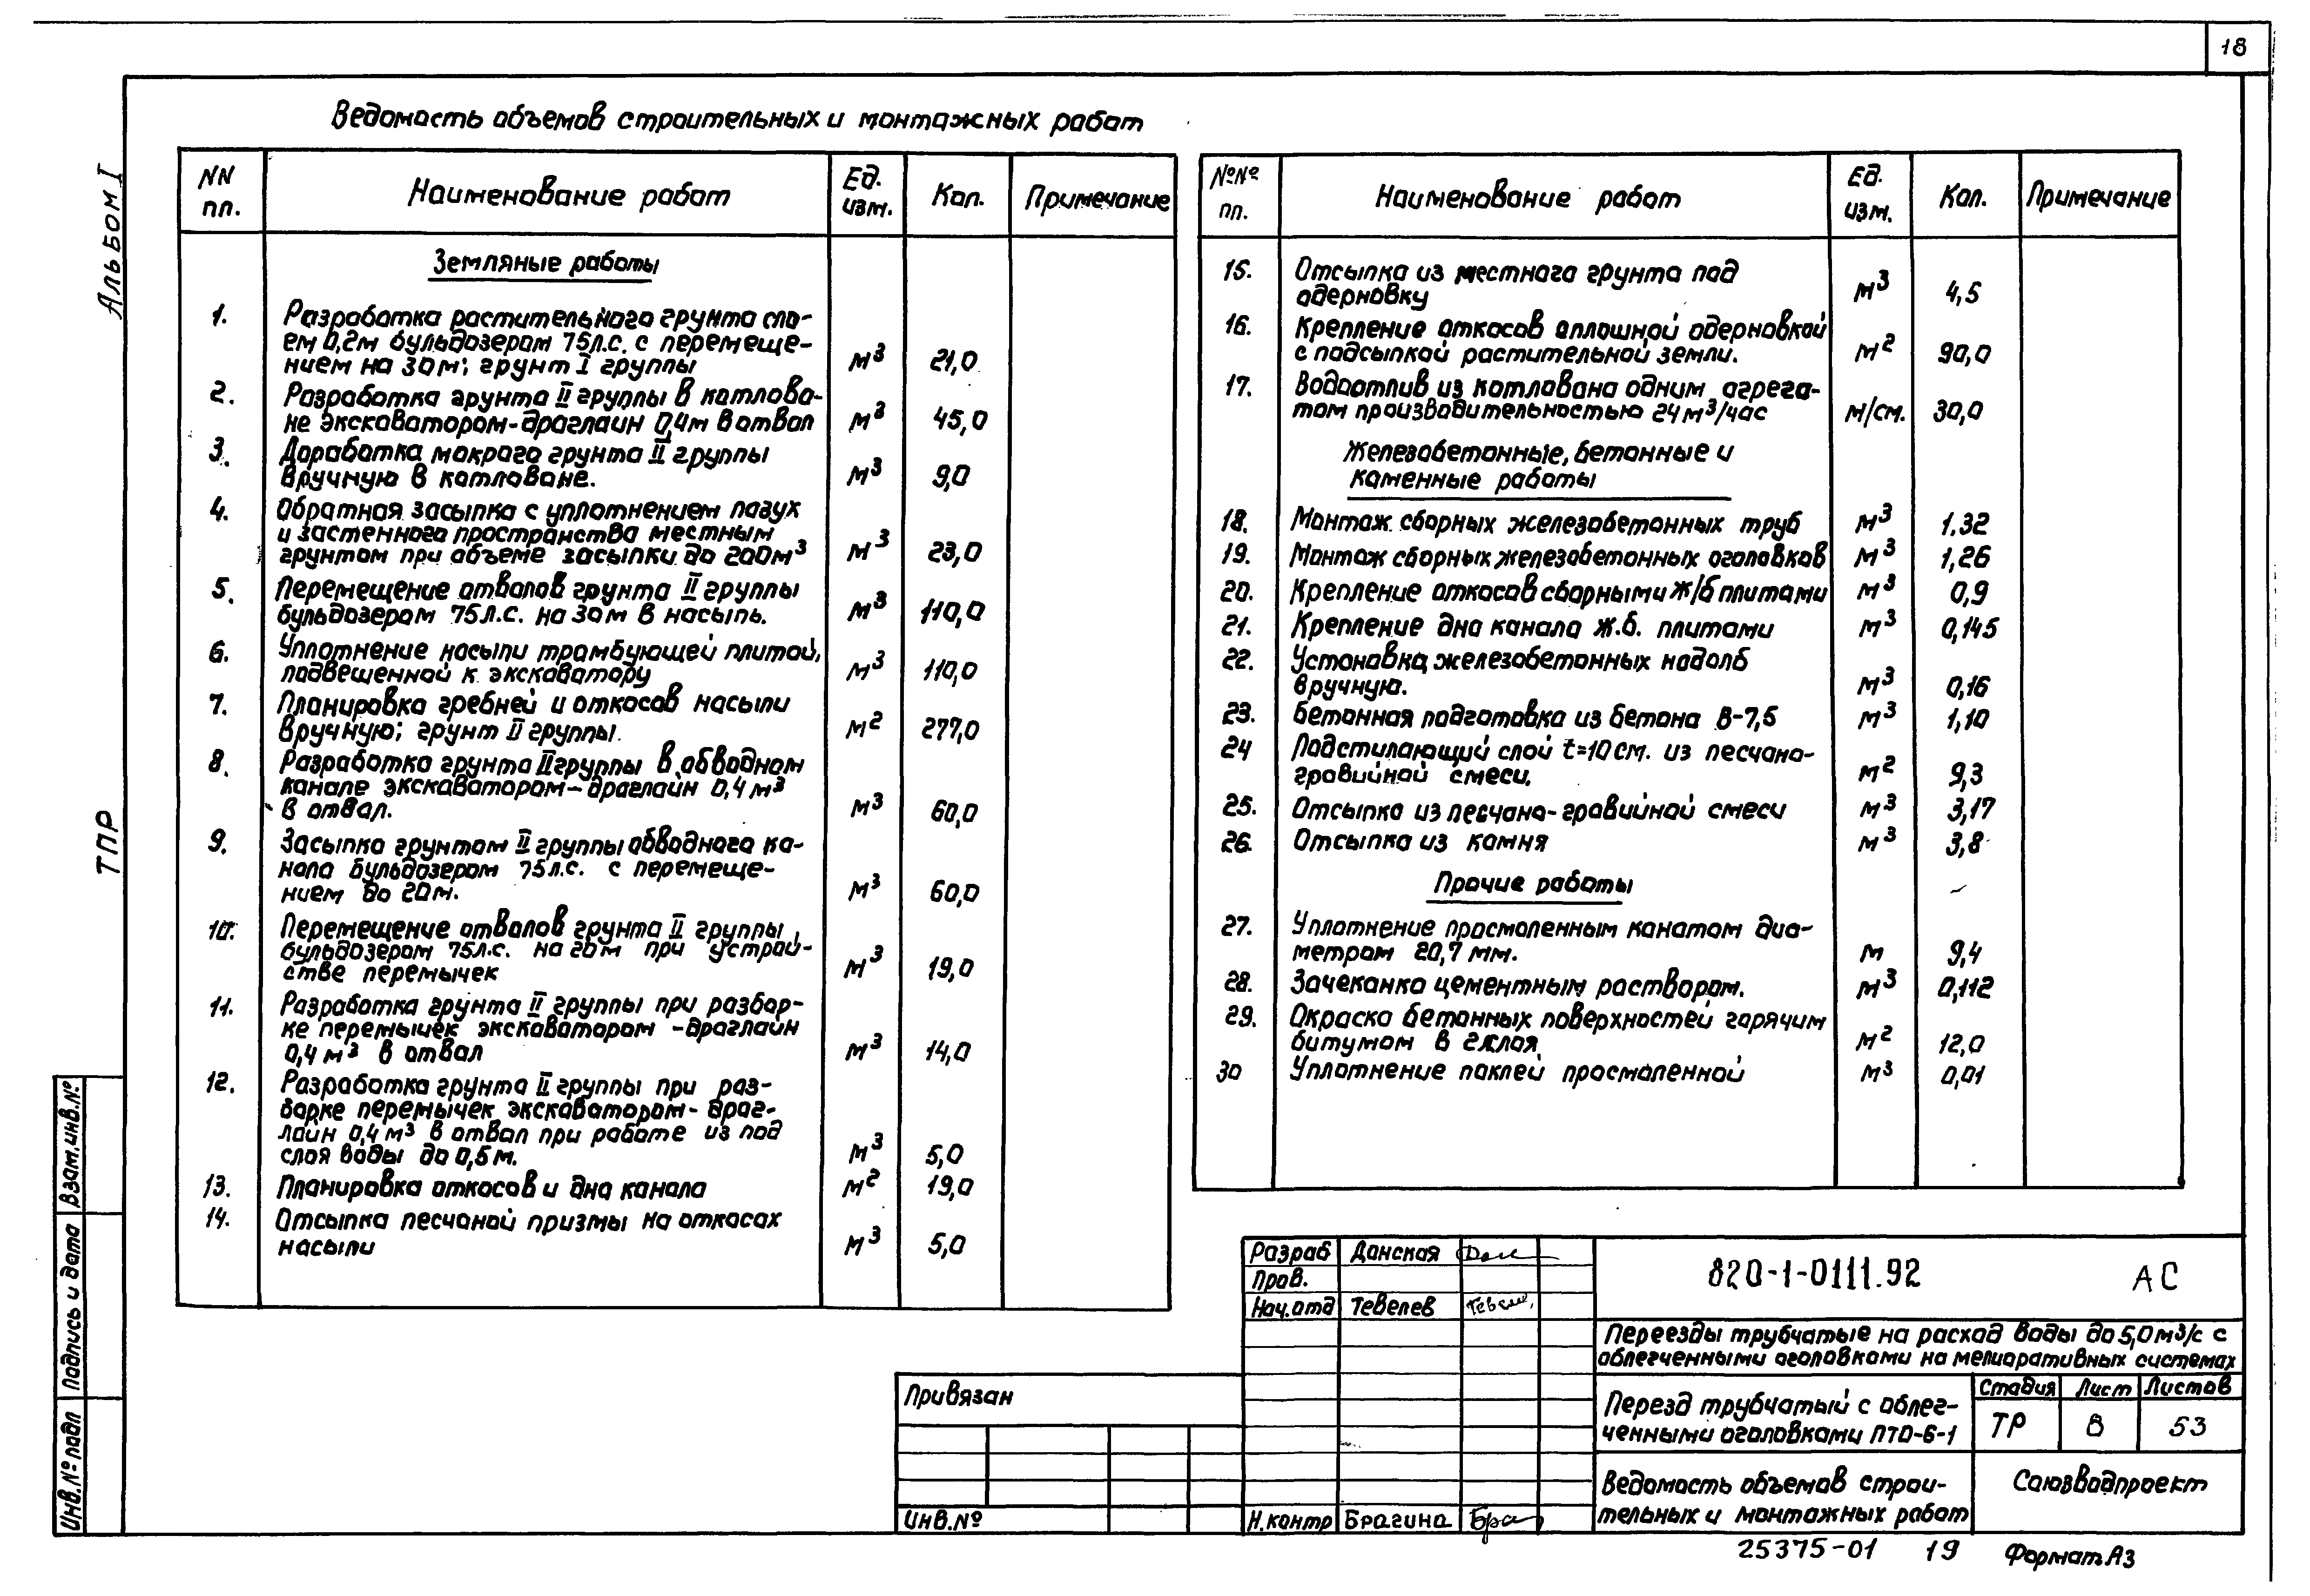 18
Альбом I
ТПР
Ведомость объемов строительных и монтажных работ
NN пп. Наименование работ Ед. изм. Кол. Примечание
Земляные работы
1. Разработка растительного грунта сло-
ем 0,2м бульдозером 75л.с. с перемеще-
нием на 30м; грунт I группы м3 21,0
2. Разработка грунта II группы в котлова-
не экскаватором-драглайн 0,4м в отвал м3 45,0
3. Доработка мокрого грунта II группы
вручную в котловане. м3 9,0
4. Обратная засыпка с уплотнением пазух
и застенного пространства местным
грунтом при объеме засыпки до 200м3 м3 23,0
5. Перемещение отвалов грунта II группы
бульдозером 75л.с. на 30м в насыпь. м3 110,0
6. Уплотнение насыпи трамбующей плитой,
подвешенной к экскаватору м3 110,0
7. Планировка гребней и откосов насыпи
вручную; грунт II группы. м2 277,0
8. Разработка грунта II группы в обводном
канале экскаватором-драглайн 0,4м3
в отвал. м3 60,0
9. Засыпка грунтом II группы обводного ка-
нала бульдозером 75л.с. с перемеще-
нием до 20м. м3 60,0
10. Перемещение отвалов грунта II группы
бульдозером 75л.с. на 20м при устрой-
стве перемычек м3 19,0
11. Разработка грунта II группы при разбор-
ке перемычек экскаватором-драглайн
0,4м3 в отвал м3 14,0
12. Разработка грунта II группы при раз-
борке перемычек экскаватором-драг-
лайн 0,4м3 в отвал при работе из под
слоя воды до 0,5м. м3 5,0
13. Планировка откосов и дна канала м2 19,0
14. Отсыпка песчаной призмы на откосах
насыпи м3 5,0
№№ пп. Наименование работ Ед. изм. Кол. Примечание
15. Отсыпка из местного грунта под
одерновку м3 4,5
16. Крепление откосов сплошной одерновкой
с подсыпкой растительной земли. м2 90,0
17. Водоотлив из котлована одним агрега-
том производительностью 24м3/час м/см. 30,0
Железобетонные, бетонные и
каменные работы
18. Монтаж сборных железобетонных труб м3 1.32
19. Монтаж сборных железобетонных оголовков м3 1,26
20. Крепление откосов сборными ж/б плитами м3 0,9
21. Крепление дна канала ж.б. плитами м3 0,145
22. Установка железобетонных надолб
вручную. м3 0,16
23. Бетонная подготовка из бетона В-7,5 м3 1,10
24 Подстилающий слой t=10см. из песчано-
гравийной смеси. м2 9,3
25. Отсыпка из песчано-гравийной смеси м3 3,17
26. Отсыпка из камня м3 3,8
Прочие работы
27. Уплотнение просмоленным канатом диа-
метром 20,7 мм. м 9,4
28. Зачеканка цементным раствором. м3 0,112
29. Окраска бетонных поверхностей горячим
битумом в 2 слоя м2 12,0
30 Уплотнение паклей просмоленной м3 0,01
Взам.инв.№
Подпись и дата
Инв.№ подл
Привязан
Инв.№
Разраб Данская
Пров.
Нач.отд Тевелев
Н.контр Брагина
820-1-0111.92 АС
Переезды трубчатые на расход воды до 5,0м3/с с
облегченными оголовками на мелиоративных системах
Переезд трубчатый с облег-
ченными оголовками ПТО-6-1
Стадия Лист Листов
ТР 8 53
Ведомость объемов строи-
тельных и монтажных работ
Союзводпроект
25375-01 19 Формат А3